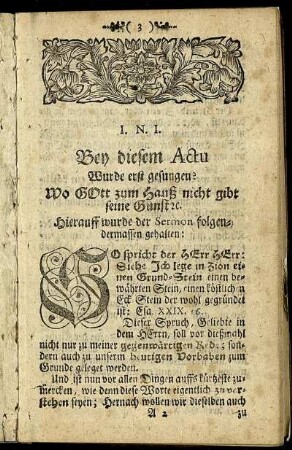 ( 3 )
I. N. I.
Bey diesem Actu
Wurde erst gesungen:
Wo GOtt zum Hauß nicht gibt
seine Gunst ꝛc.
Hierauff wurde der Sermon folgen-
dermassen gehalten:
SO spricht der HErr HErr:
Siehe Ich lege in Zion ei-
nen Grund-Stein einen be-
währten Stein, einen köstlichn
Eck Stein der wohl gegründet
ist: Esa. XXIX. 16.
Dieser Spruch, Geliebte in
dem HErrn, soll vor dießmahl
nicht nur zu meiner gegenwärtigen Rede; son-
dern auch zu unserm heutigen Vorhaben zum
Grunde geleget werden.
Und ist nun vor allen Dingen auffs kürtzeste zu-
mercken, wie denn diese Worte eigentlich zu ver-
stehen seyen; Hernach wollen wir dieselben auch
A 2 zu